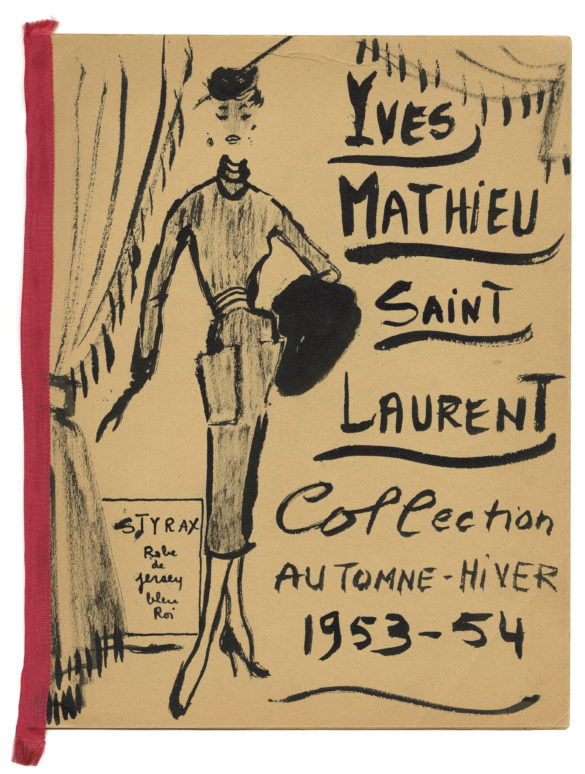 YVES
MATHIEU
SAINT
LAURENT
Collection
AUTOMNE-HIVER
1953-54
STYRAX
Robe
de
jersey
bleu
Roi